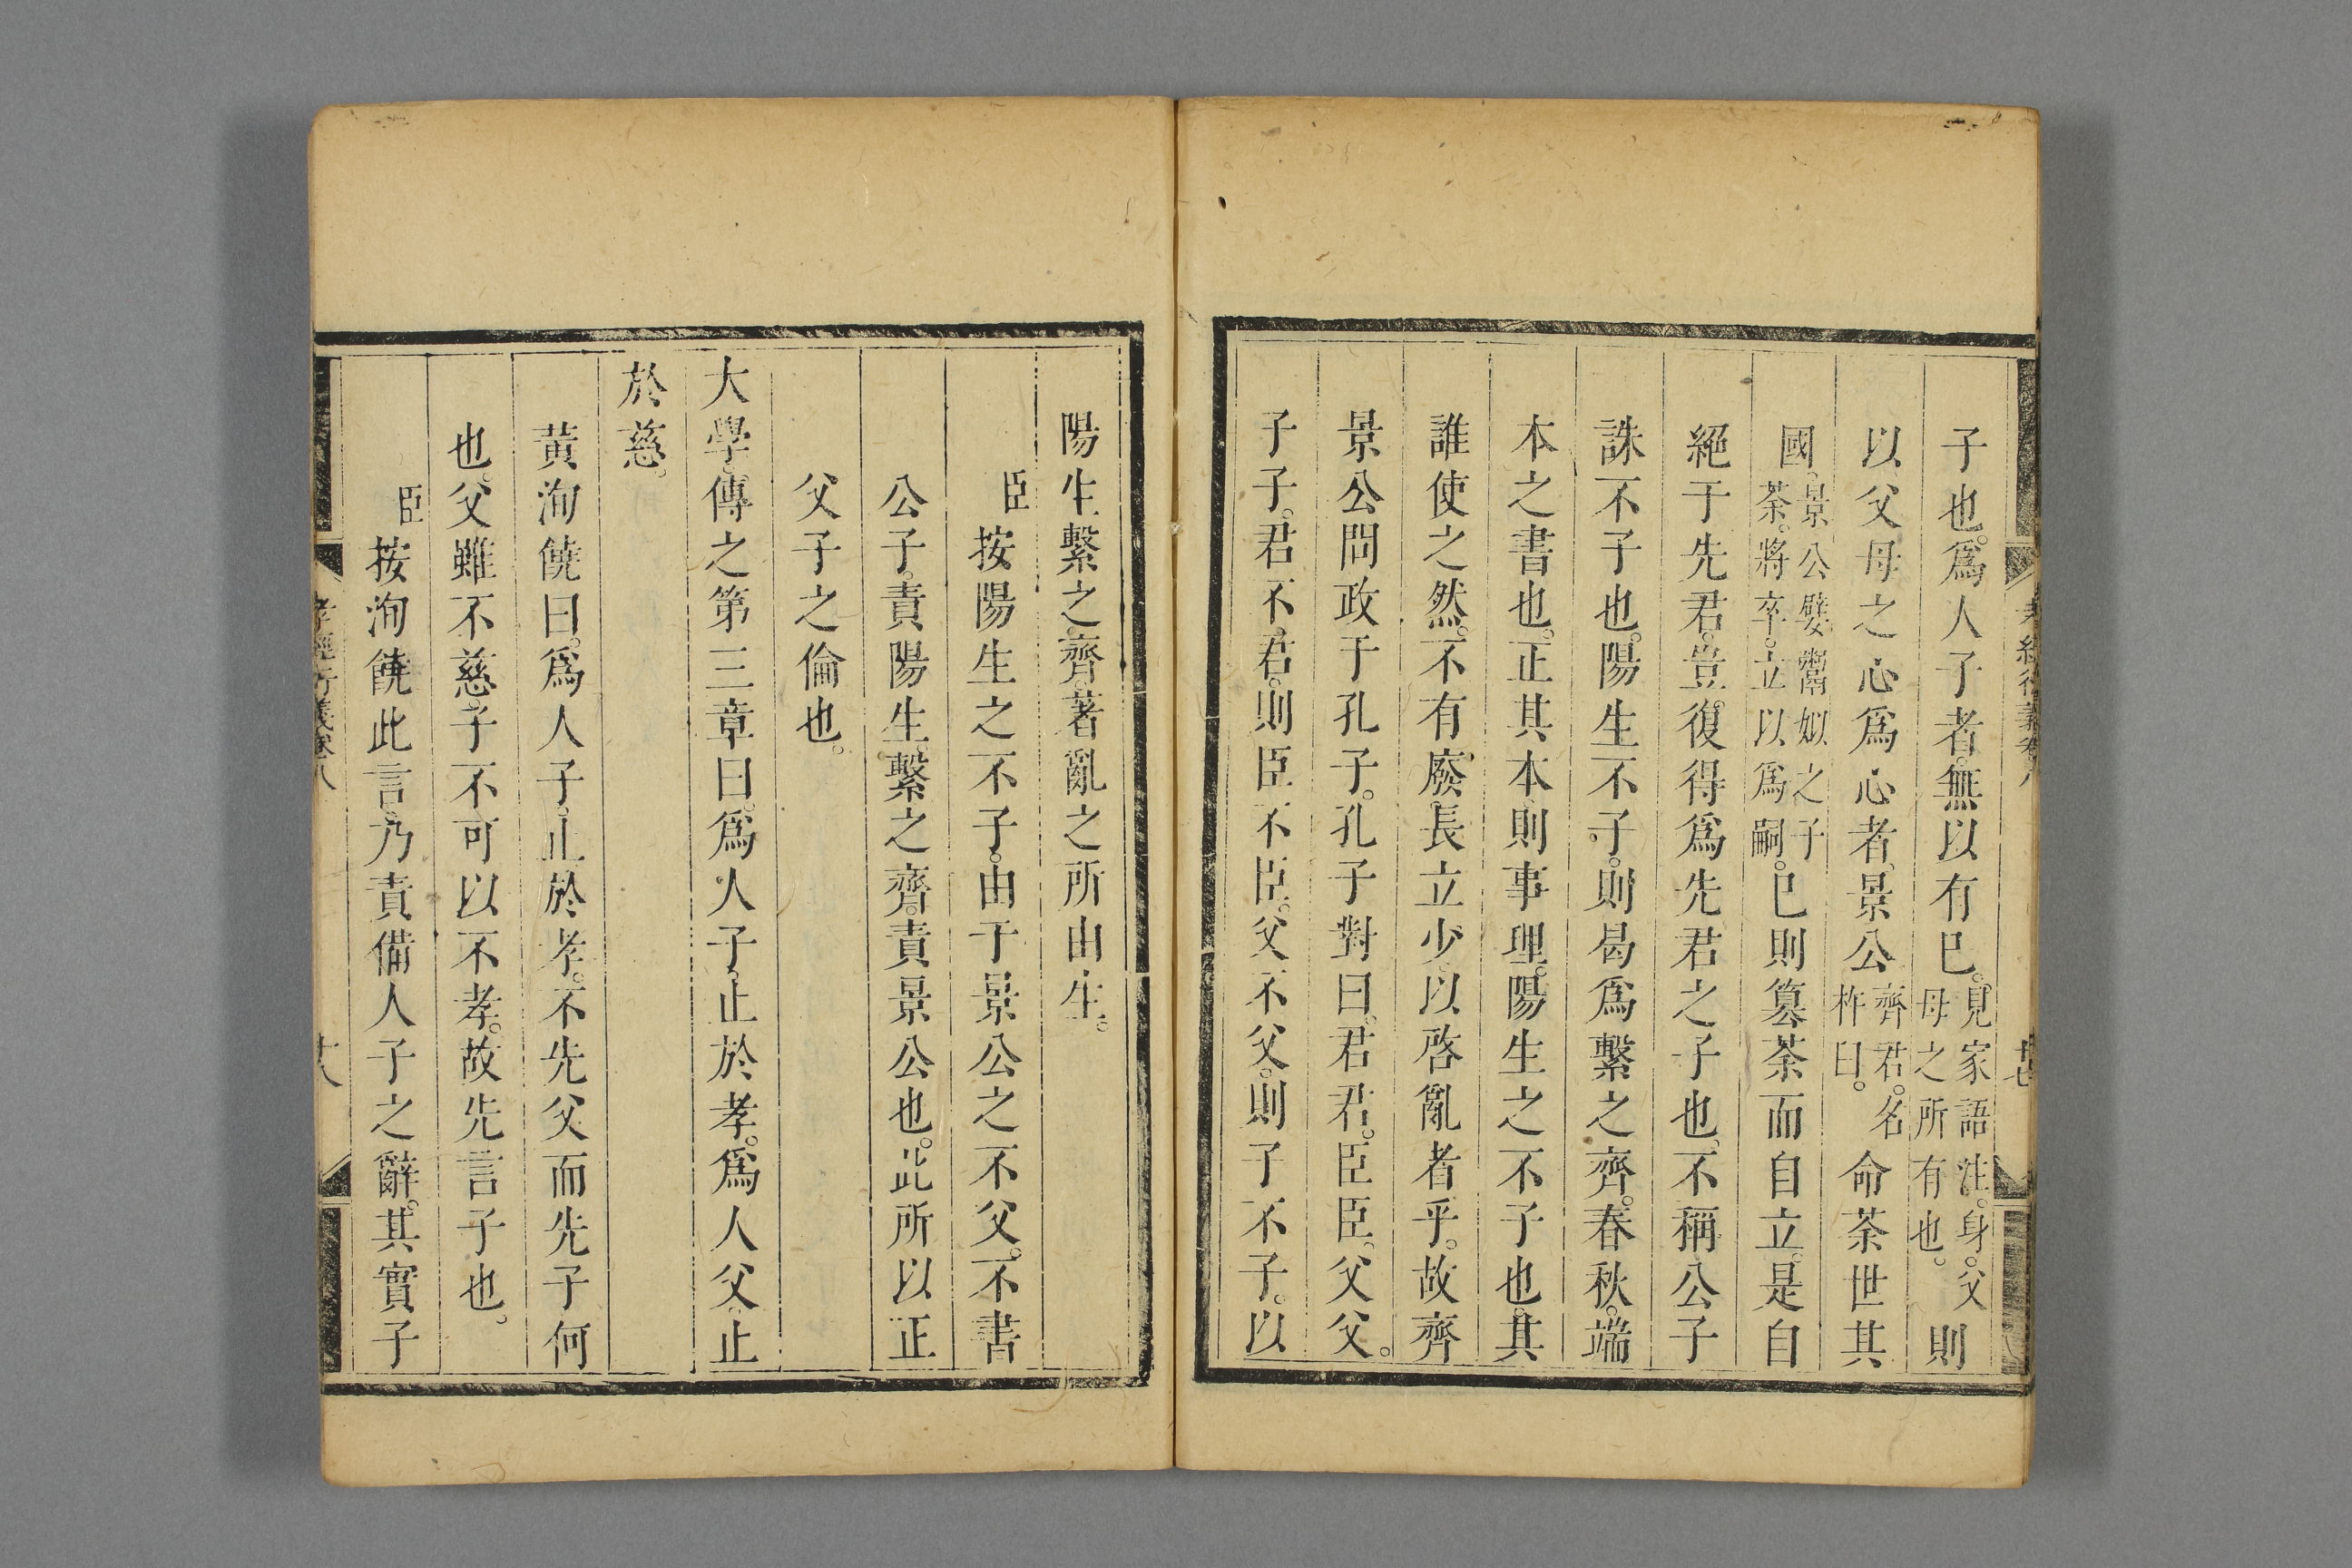 孝經衍義卷八
廿七
子也。爲人子者。無以有已。見家語注。身。父母之所有也。則
以父母之心爲心者。景公齊君。名杵臼。命荼世其
國。景公嬖鬻姒之子荼。將卒。立以爲嗣。已則篡荼而自立。是自
絕于先君。豈復得爲先君之子也。不稱公子
誅不子也。陽生不子。則曷爲繫之齊。春秋。端
本之書也。正其本。則事理。陽生之不子也。其
誰使之然。不有廢長立少。以啓亂者乎。故齊
景公問政于孔子。孔子對曰。君君。臣臣。父父。
子子。君不君。則臣不臣。父不父。則子不子。以
陽生繫之齊。著亂之所由生。
臣按陽生之不子。由于景公之不父。不書
公子。責陽生。繫之齊。責景公也。此所以正
父子之倫也。
大學傳之第三章曰。爲人子。止於孝。爲人父。止
於慈。
黃洵饒曰。爲人子。止於孝。不先父而先子何
也。父雖不慈。子不可以不孝。故先言子也。
臣按洵饒此言。乃責備人子之辭。其實子
孝經衍義卷八
廿八